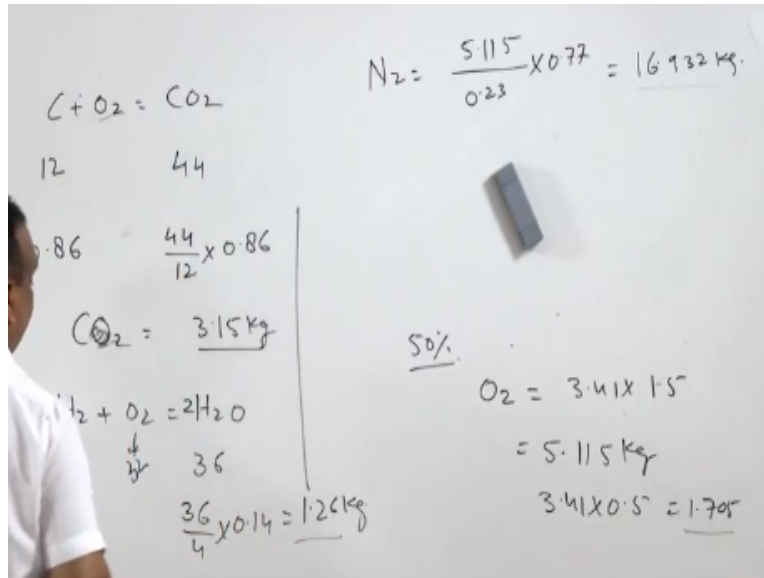 C + O2 = CO2
12 44
.86 44/12 x 0.86
CO2 = 3.15 kg
H2 + O2 = 2H2O
↓
32 36
36/4 x 0.14 = 1.26 kg
N2 = 5.115/0.23 x 0.77 = 16.932 kg.
50%
O2 = 3.41 x 1.5
= 5.115 kg
3.41 x 0.5 = 1.705